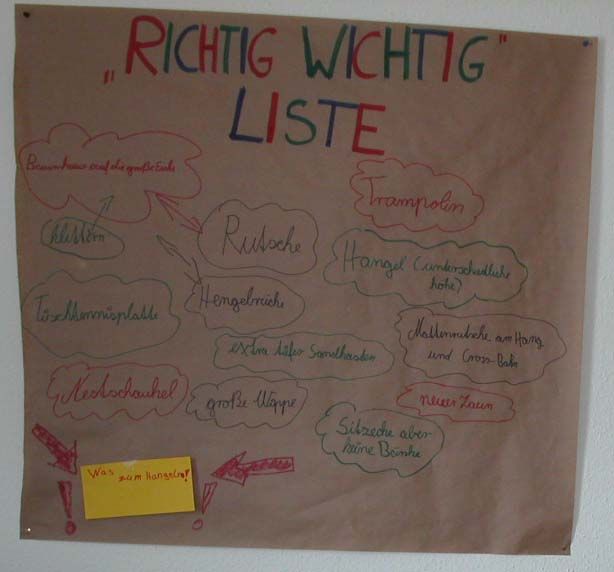 „RICHTIG WICHTIG"
LISTE
Baumhaus auf die große Eiche
Trampolin
klettern
Rutsche
Hangel (unterschiedliche
höhe)
Hengebrücke
Tischtennisplatte
Mattenrutsche am Hang
und Cross-Bahn
extra tiefer Sandkasten
Nestschaukel
große Wippe
neuer Zaun
Sitzecke aber
keine Bänke
Was
zum Hangeln!